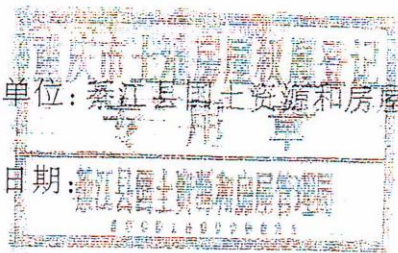 重庆市土地房屋权属登记
单位:綦江县国土资源和房屋
专用章
日期:
綦江县国土资源和房屋管理局